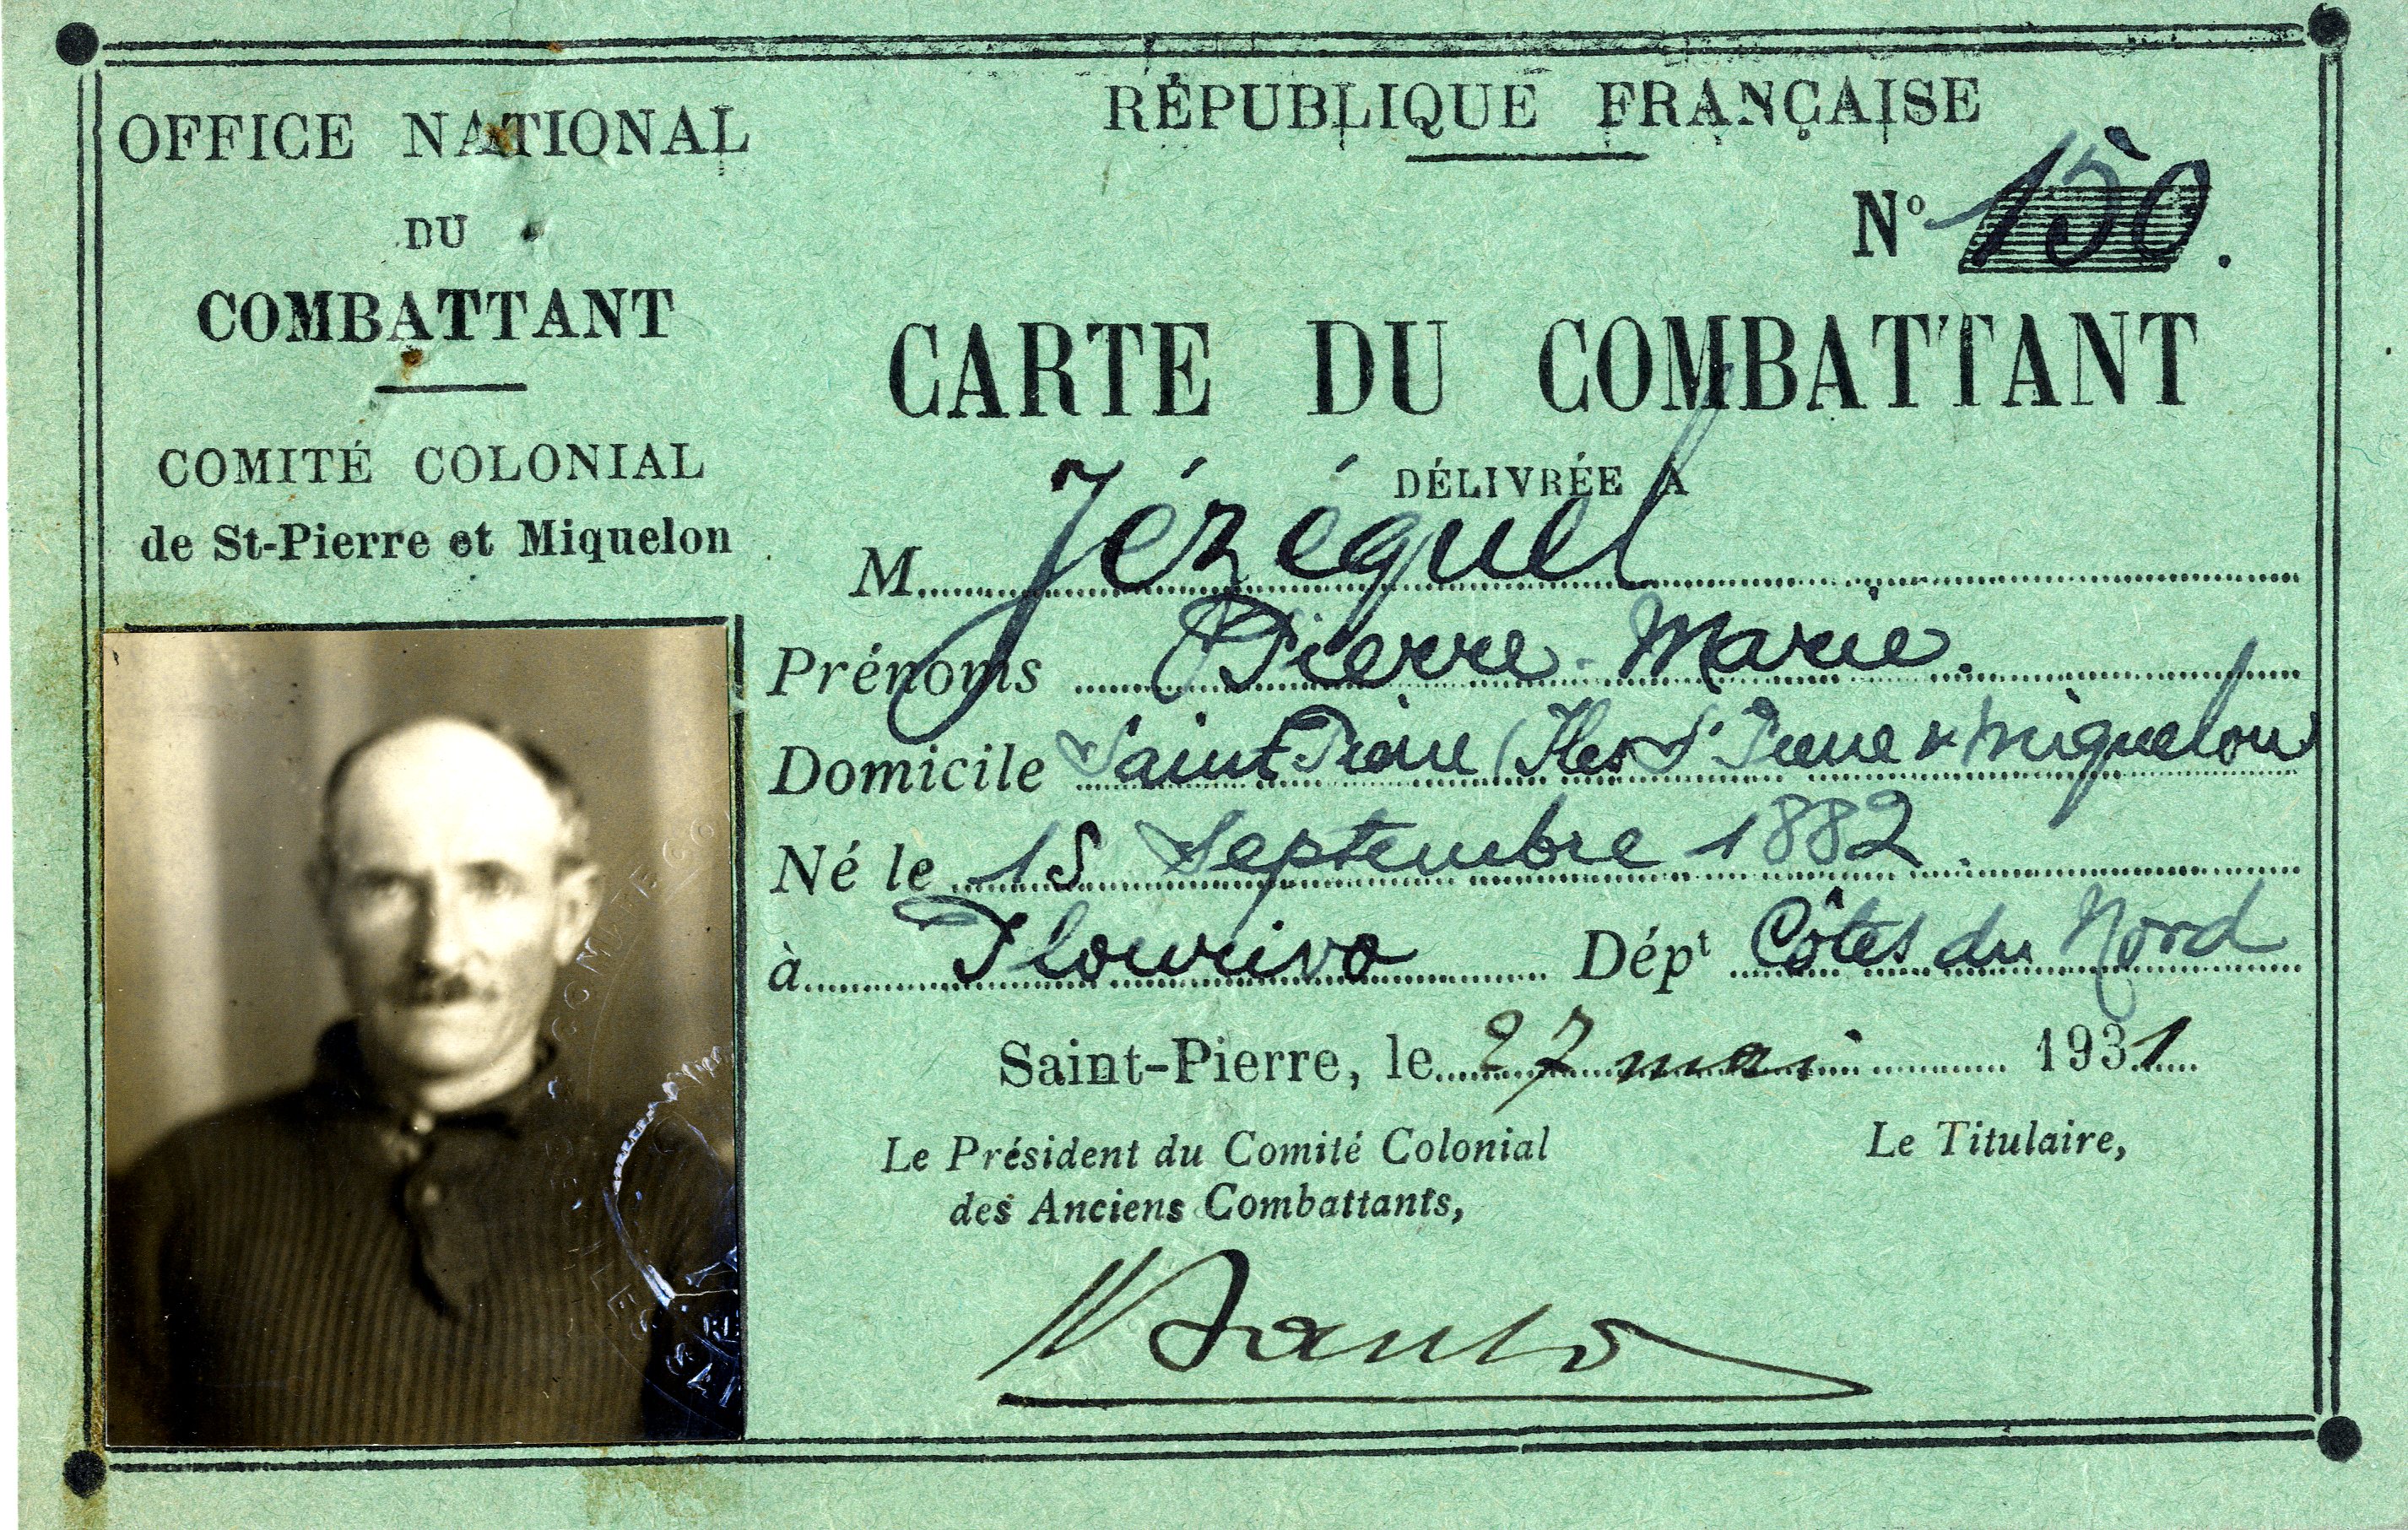 OFFICE NATIONAL
DU
COMBATTANT
COMITÉ COLONIAL
de St-Pierre et Miquelon
RÉPUBLIQUE FRANÇAISE
Nº 150.
CARTE DU COMBATTANT
DÉLIVRÉE À
M. Jézéquel
Prénoms Pierre-Marie.
Domicile Saint-Pierre (Iles St Pierre & Miquelon
Né le 15 Septembre 1882.
à Plourivo Dépt Côtes du Nord
Saint-Pierre, le 27 mai 1931
Le Président du Comité Colonial
des Anciens Combattants,
Le Titulaire,